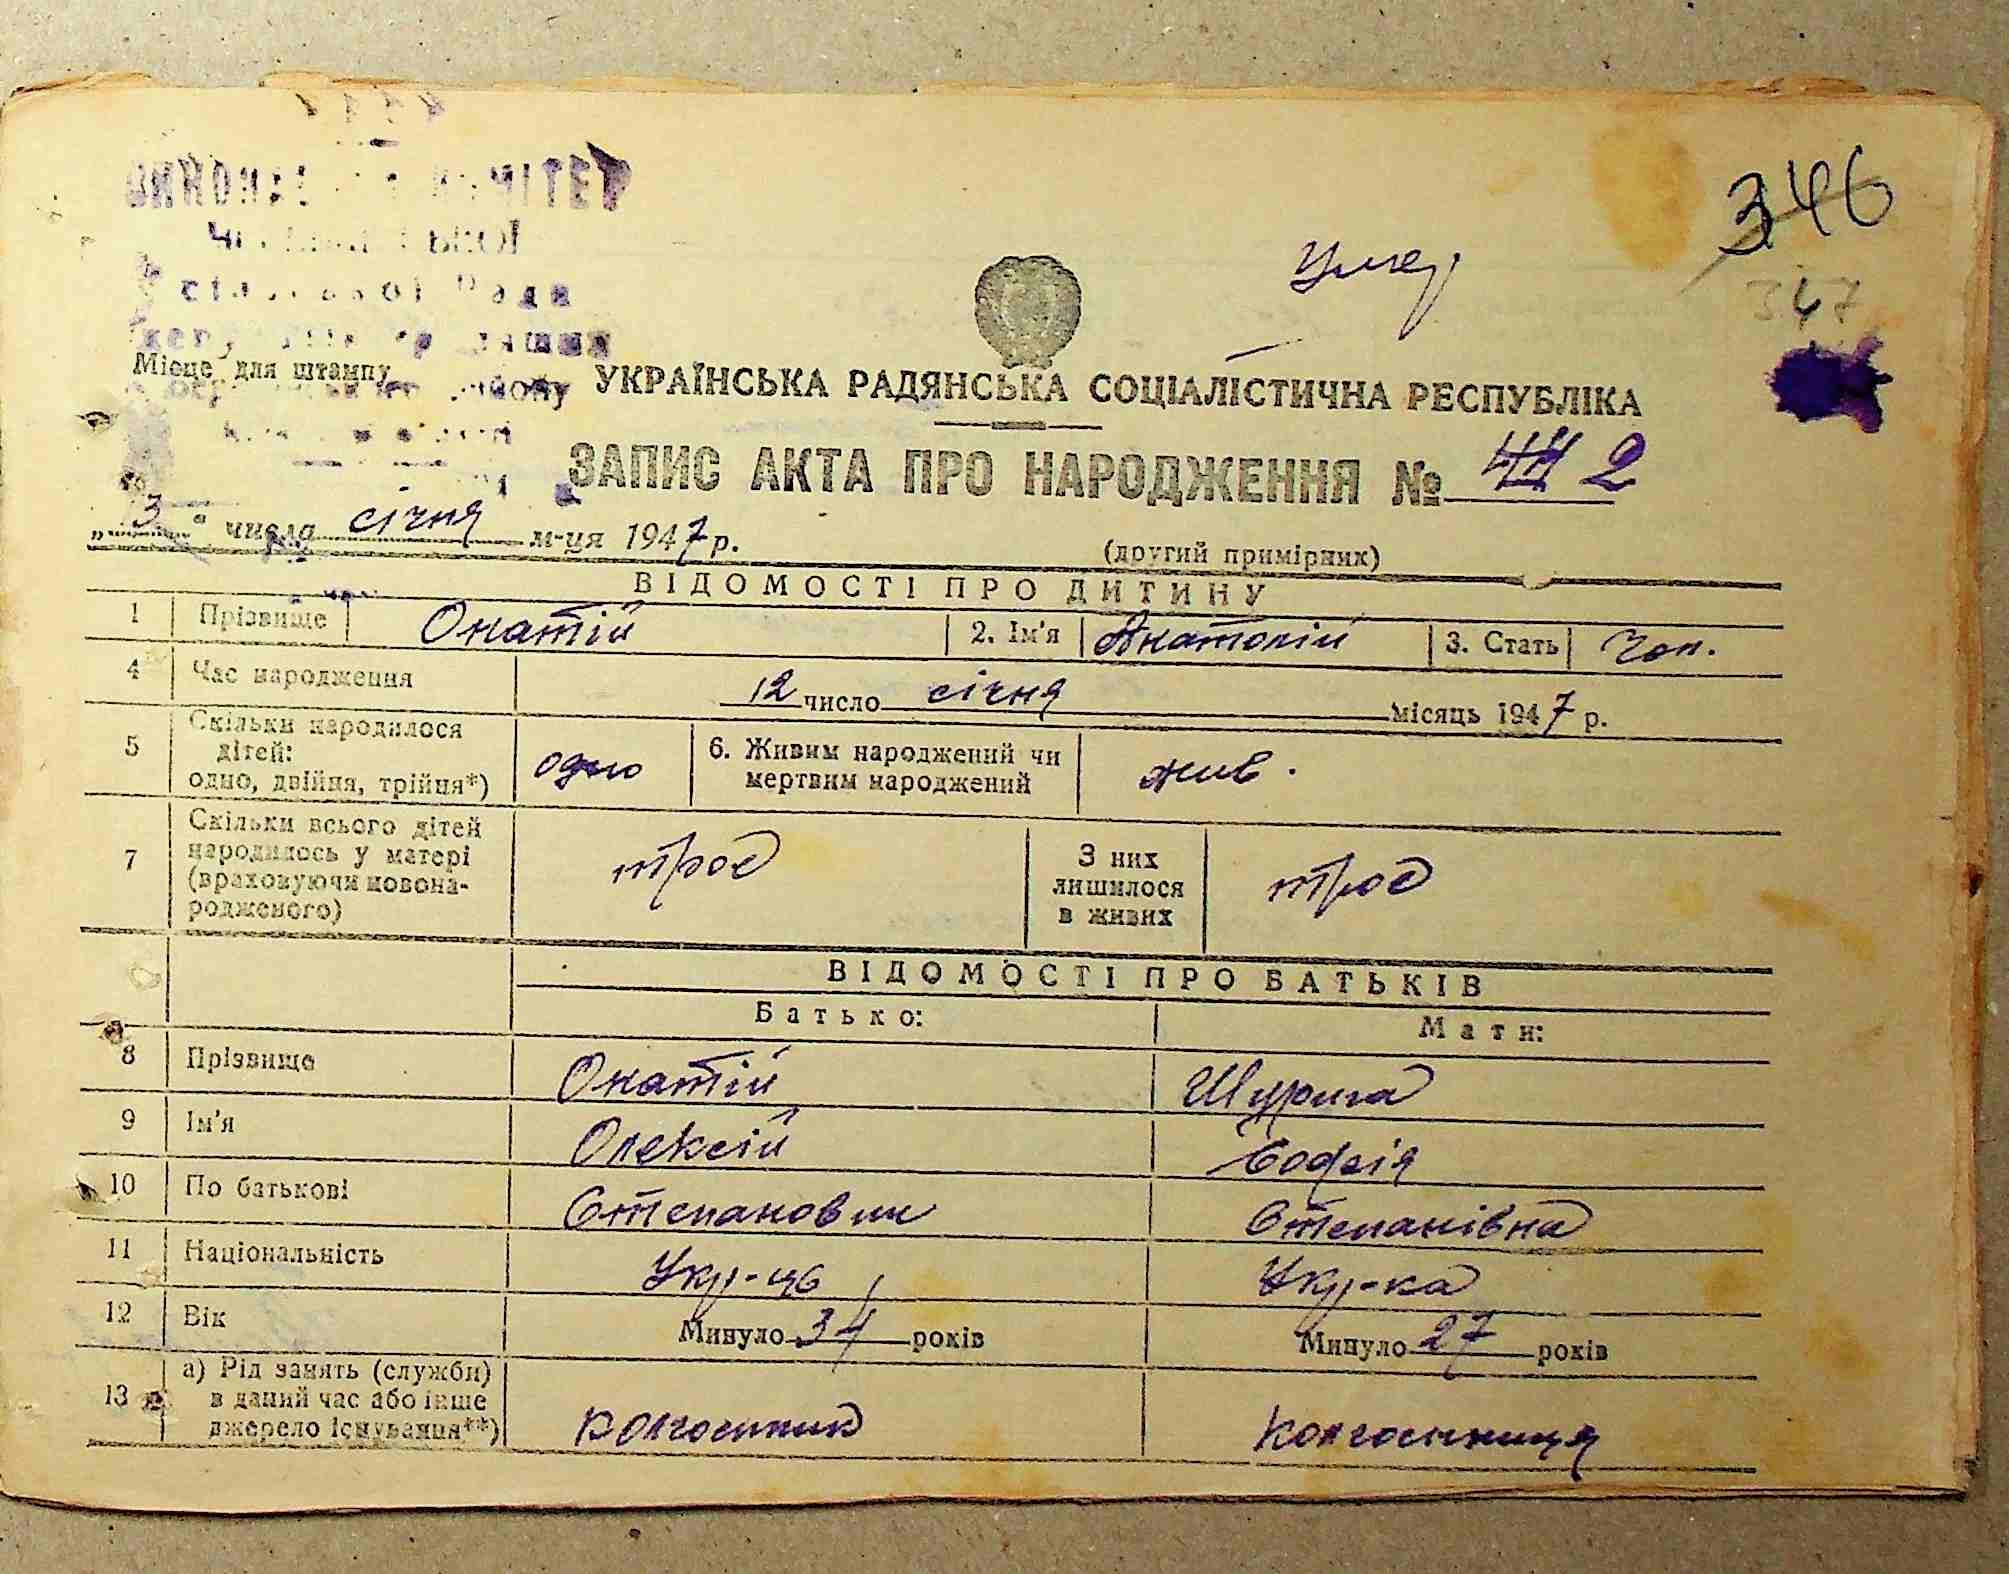 346
347
Умер
Місце для штампу
УКРАЇНСЬКА РАДЯНСЬКА СОЦІАЛІСТИЧНА РЕСПУБЛІКА
ЗАПИС АКТА ПРО НАРОДЖЕННЯ № 2
„3“ числа січня м-ця 1947 р.
(другий примірник)
ВІДОМОСТІ ПРО ДИТИНУ
1 Прізвище Онатій 2. Ім'я Анатолій 3. Стать Чол.
4 Час народження 12 число січня місяць 1947 р.
5 Скільки народилося дітей: одно, двійня, трійня*) одно 6. Живим народжений чи мертвим народжений жив.
7 Скільки всього дітей народилось у матері (враховуючи новонародженого) троє З них лишилося в живих троє
ВІДОМОСТІ ПРО БАТЬКІВ
Батько: Мати:
8 Прізвище Онатій Шурига
9 Ім'я Олексій Софія
10 По батькові Степанович Степанівна
11 Національність Укр-ць Укр-ка
12 Вік Минуло 34 років Минуло 27 років
13 а) Рід занять (служби) в даний час або інше джерело існування**) колгоспник колгоспниця